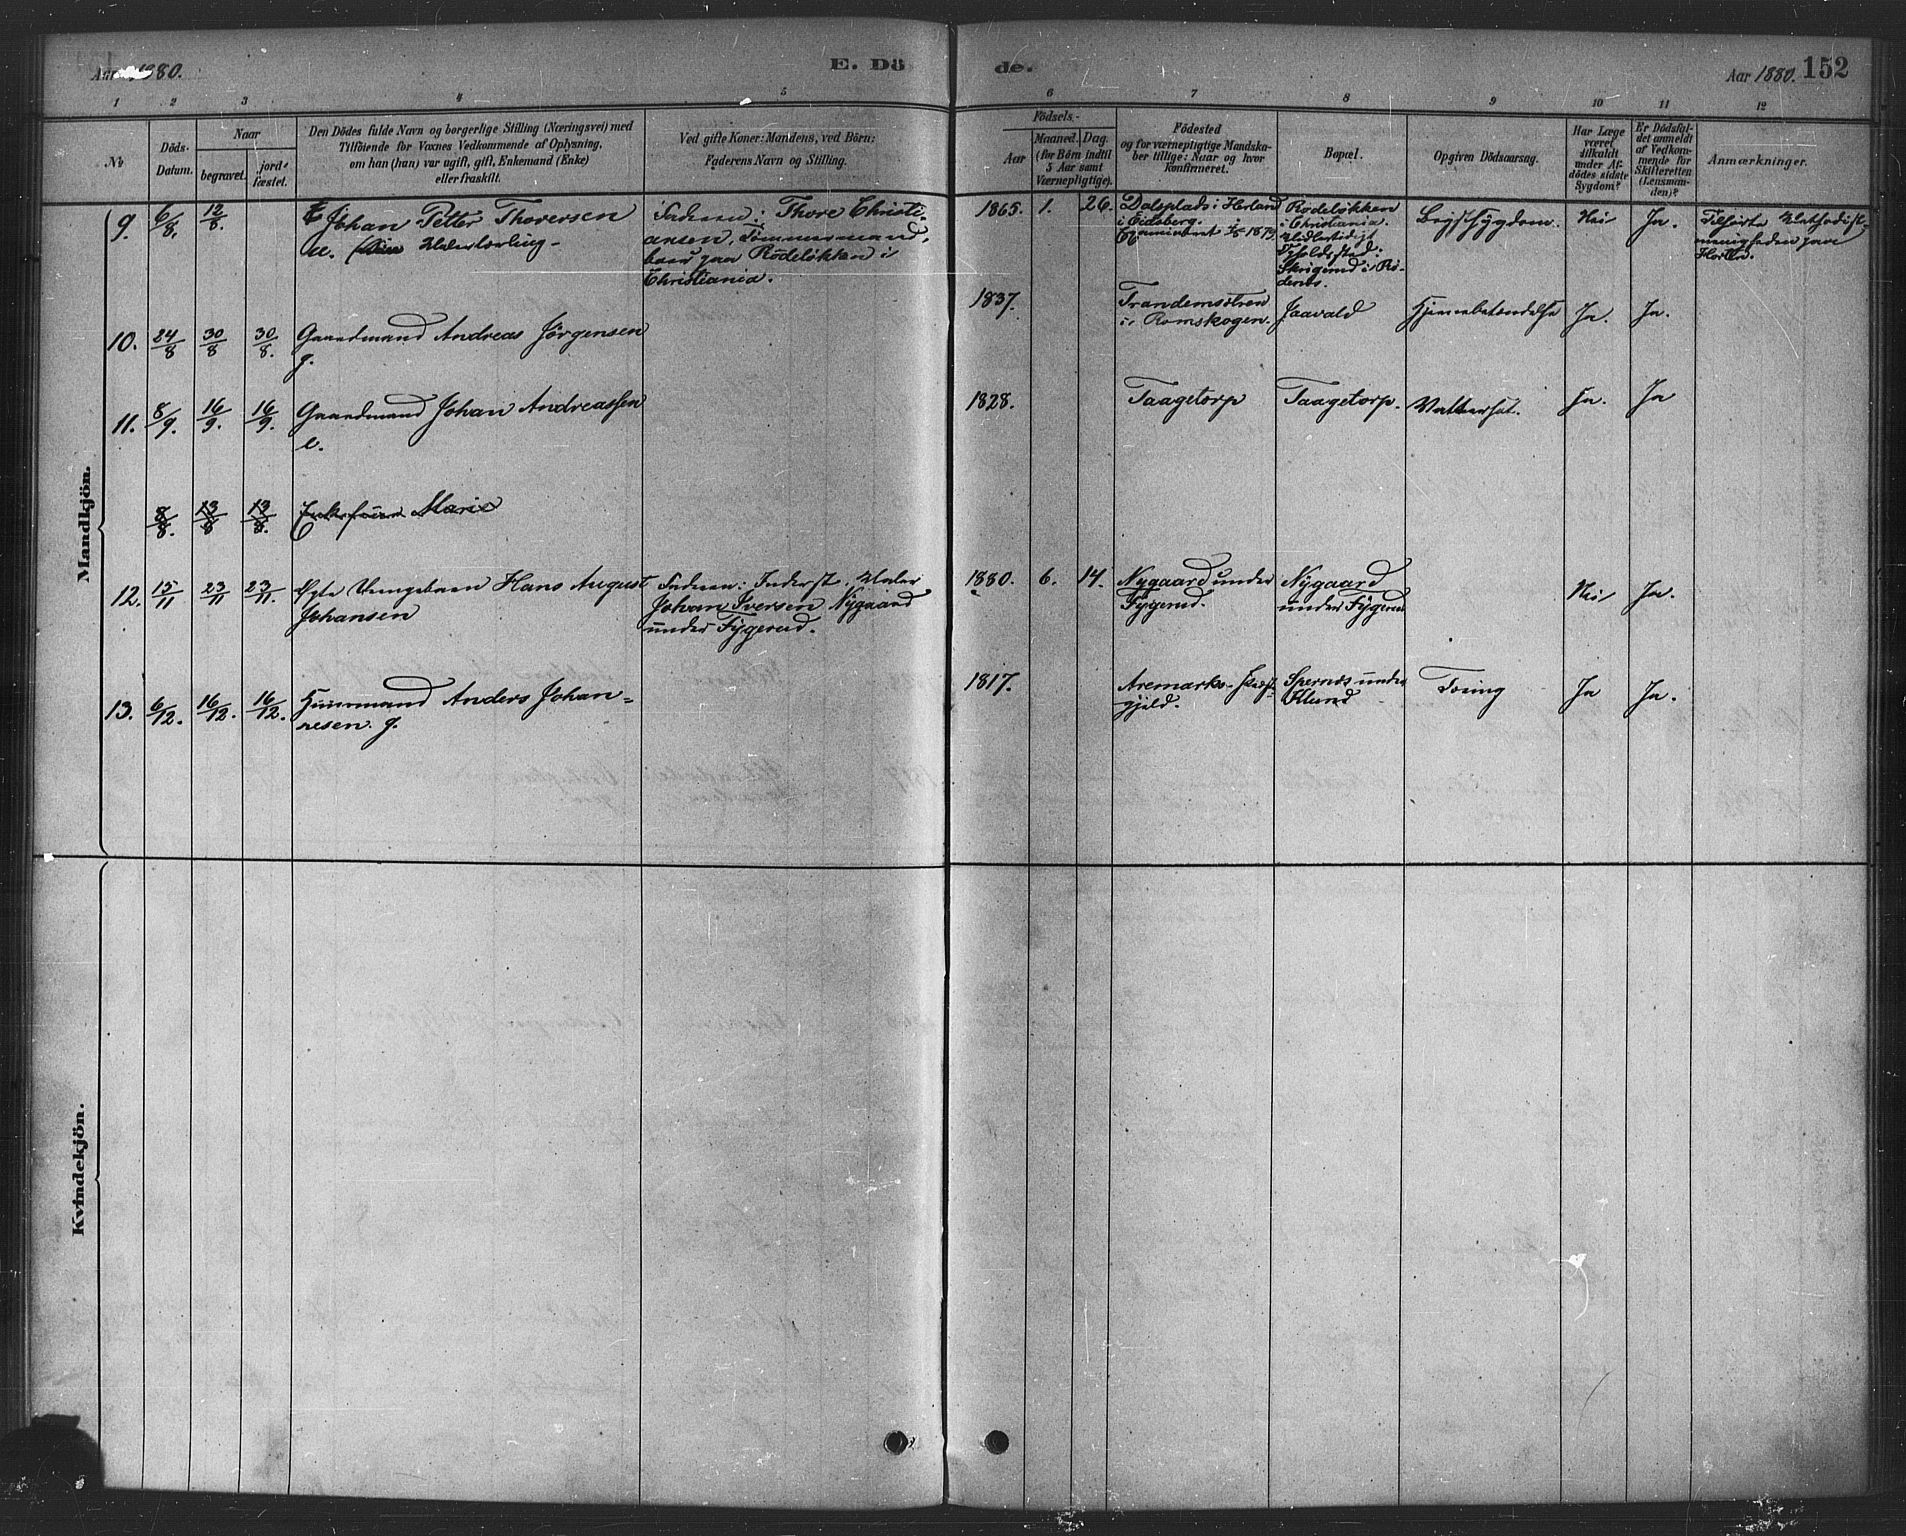 Aar 1880.
E. Dö
de.
Aar 1880. 152
1 2 3 4 5 6 7 8 9 10 11 12
No
Döds-
Datum.
Naar
begravet.
jord-
fæstet.
Den Dödes fulde Navn og borgerlige Stilling (Næringsvei) med
Tilföiende for Voxnes Vedkommende af Oplysning,
om han (hun) var ugift, gift, Enkemand (Enke)
eller fraskilt.
Ved gifte Koner: Mandens, ved Börn:
Faderens Navn og Stilling.
Födsels.-
Aar
Maaned. Dag.
(for Börn indtil
5 Aar samt
Værnepligtige).
Födested
og for værnepligtige Mandska-
ber tillige: Naar og hvor
konfirmeret.
Bopæl.
Opgiven Dödsaarsag.
Har Læge
været
tilkaldt
under Af-
dödes sidste
Sygdom?
Er Dödsfal-
det anmeldt
af Vedkom-
mende for
Skifteretten
(Lensman-
den)?
Anmærkninger.
Mandkjön.
9. 6/8. 12/8. Johan Petter Thoversen
Malerlærling
Faderen: Thore Christi-
ansen, Tømmermand,
boer paa Rodeløkken i
Christiania.
1865. 1. 26. Dalsplads i Herland
i Eidsberg.
1879.
Rodeløkken
i Christiania.
Midlertidigt
Opholdssted:
Skrigerud i Rö-
denes.
Brystsygdom. Nei Ja. Tilhørte Methodist-
menigheden paa
Horten.
10. 24/8 30/8 30/8. Gaardmand Andreas Jörgensen
g.
1837. Trandemsætren
i Romskogen. Jaavald Hjernebetændelse Ja. Ja.
11. 8/9. 16/9. 16/9. Gaardmand Johan Andreassen
e.
1828. Taagetorp Taagetorp. Vattersot. Ja. Ja
8/8. 13/8 13/8. Marie
12. 15/11 23/11 23/11. Ægte Drengebarn Hans August
Johansen
Faderen: Inderst, Maler
Johan Iversen Nygaard
under Fygerud.
1880. 6. 14. Nygaard under
Fygerud.
Nygaard
under Fygerud
Nei Ja.
13. 6/12. 16/12. 16/12. Huusmand Anders Johan-
nesen g.
1817. Aremarks Præste-
gjeld.
Spernes under
Klund
Tæring Ja Ja.
Kvindekjön.